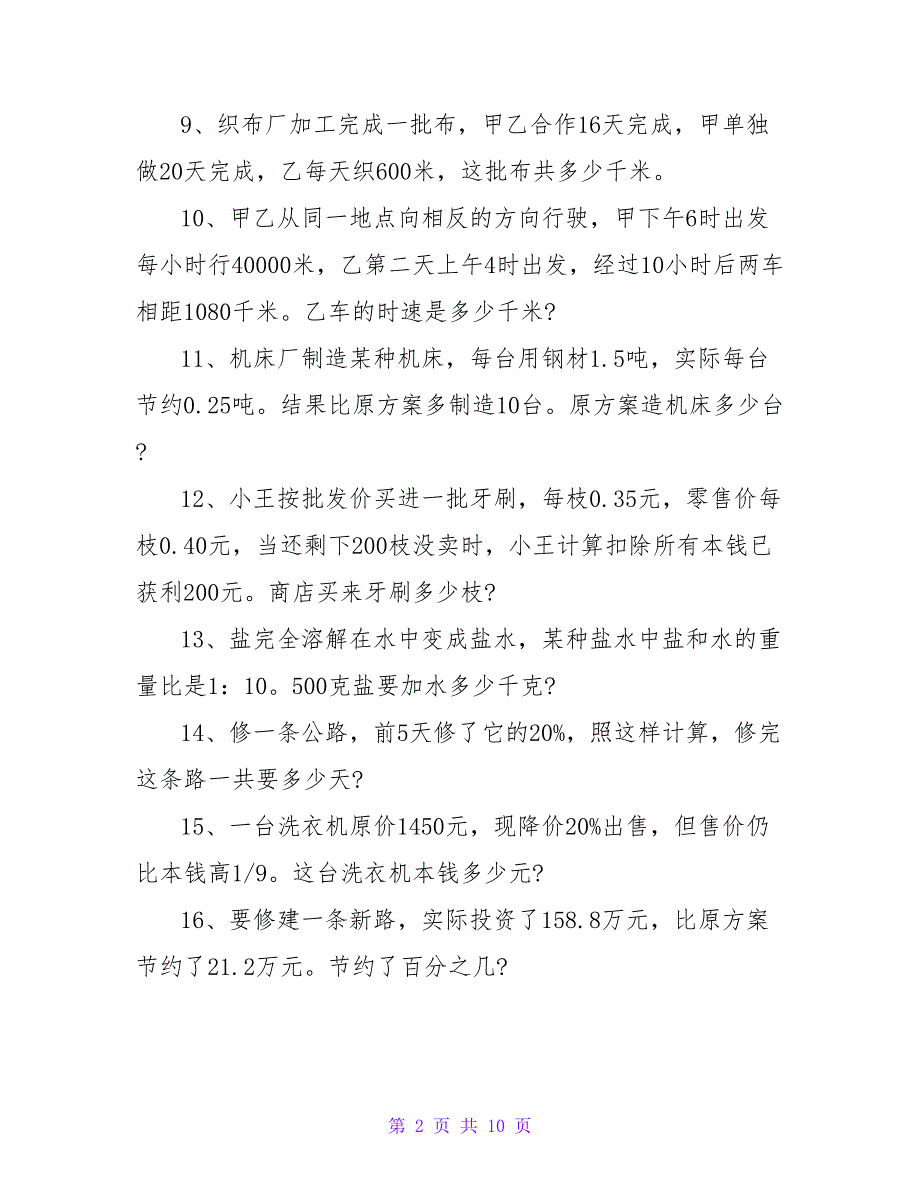 9、织布厂加工完成一批布，甲乙合作16天完成，甲单独
做20天完成，乙每天织600米，这批布共多少千米。
10、甲乙从同一地点向相反的方向行驶，甲下午6时出发
每小时行40000米，乙第二天上午4时出发，经过10小时后两车
相距1080千米。乙车的时速是多少千米?
11、机床厂制造某种机床，每台用钢材1.5吨，实际每台
节约0.25吨。结果比原方案多制造10台。原方案造机床多少台
?
12、小王按批发价买进一批牙刷，每枝0.35元，零售价每
枝0.40元，当还剩下200枝没卖时，小王计算扣除所有本钱已
获利200元。商店买来牙刷多少枝?
13、盐完全溶解在水中变成盐水，某种盐水中盐和水的重
量比是1：10。500克盐要加水多少千克?
14、修一条公路，前5天修了它的20%，照这样计算，修完
这条路一共要多少天?
15、一台洗衣机原价1450元，现降价20%出售，但售价仍
比本钱高1/9。这台洗衣机本钱多少元?
16、要修建一条新路，实际投资了158.8万元，比原方案
节约了21.2万元。节约了百分之几?
第 2 页 共 10 页